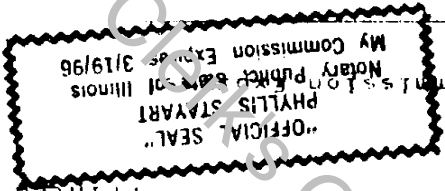 "OFFICIAL SEAL"
PHYLLIS STAYART
Notary Public, State of Illinois
My Commission Expires 3/19/96
Clerk's